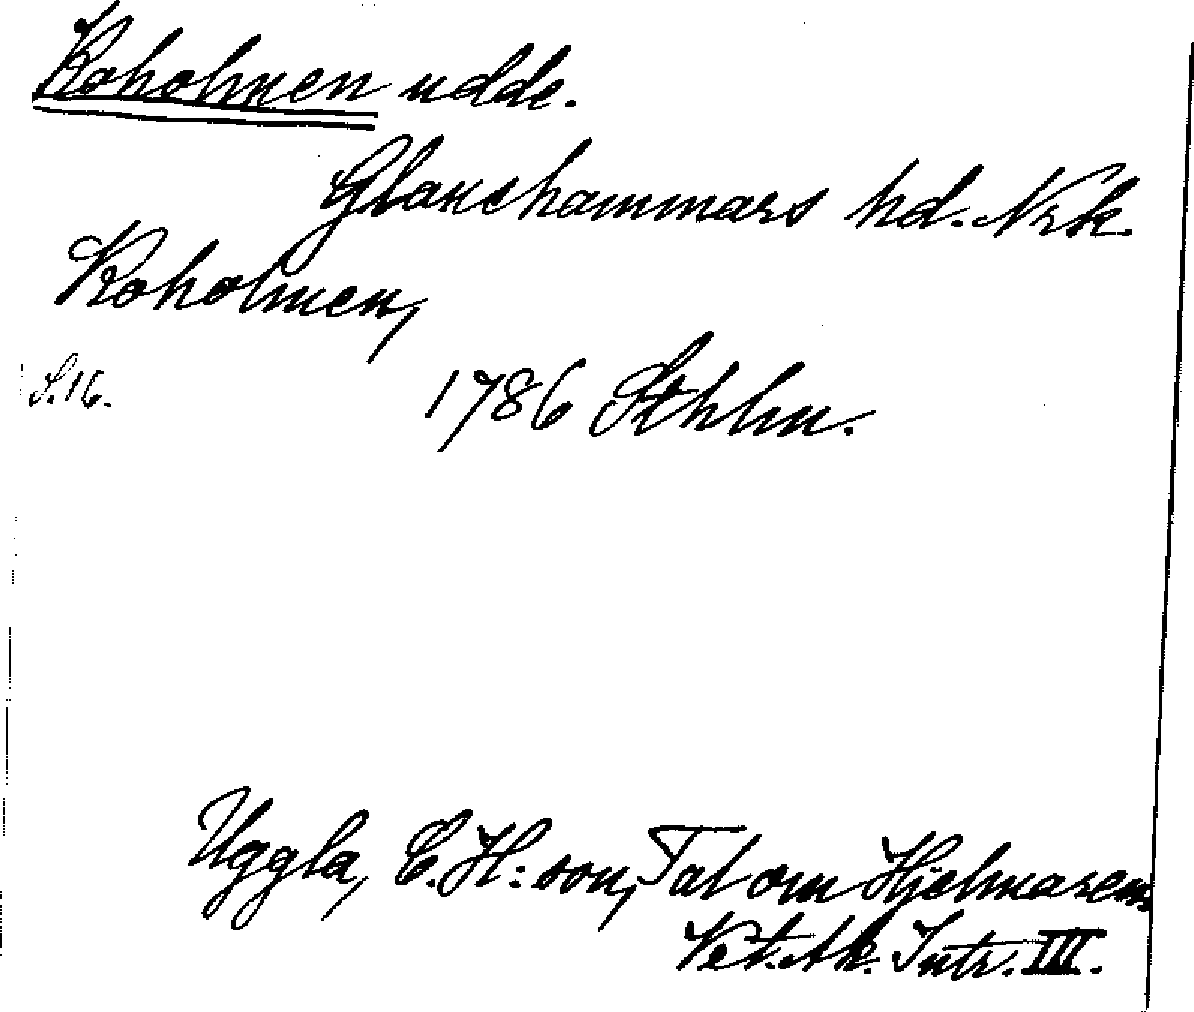 Koholmen udde.
Glanshammars hd. Nrk.
Koholmen,
S. 16. 1786 Sthlm.
Uggla, C. H:son, Tal om Hjelmaren.
Vet. Ak. Intr. III.